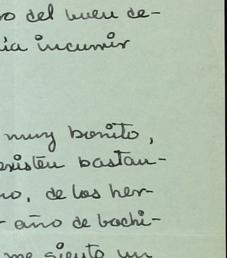 o del buen de-
ia incurrir
muy bonito,
existen bastan-
no, de los her-
año de bachi-
me siento un